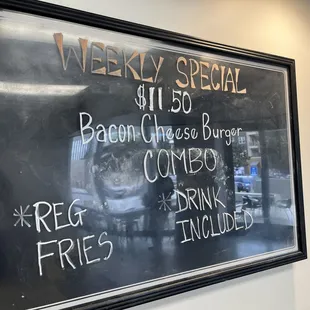 WEEKLY SPECIAL
$11.50
Bacon Cheese Burger
COMBO
*REG
FRIES
*DRINK
INCLUDED